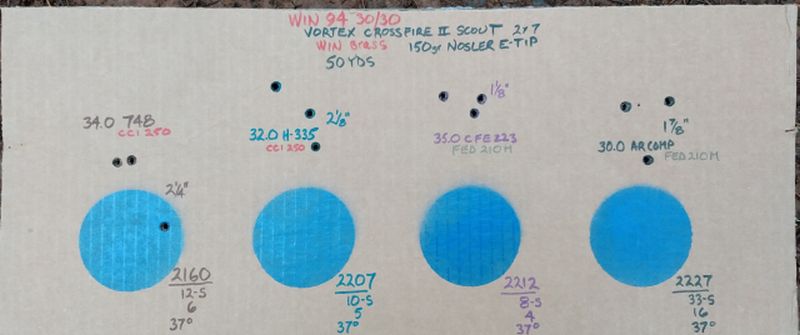 WIN 94 30/30
VORTEX CROSSFIRE II SCOUT 2x7
WIN Brass 150gr NOSLER E-TIP
50 YDS
34.0 748
CCI 250
2 1/4"
2160
12-S
6
37°
2 1/8"
32.0 H-335
CCI 250
2207
10-S
5
37°
1 1/8"
35.0 CFE 223
FED 210M
2212
8-S
4
37°
1 7/8"
30.0 AR COMP
FED 210M
2227
33-S
16
37°